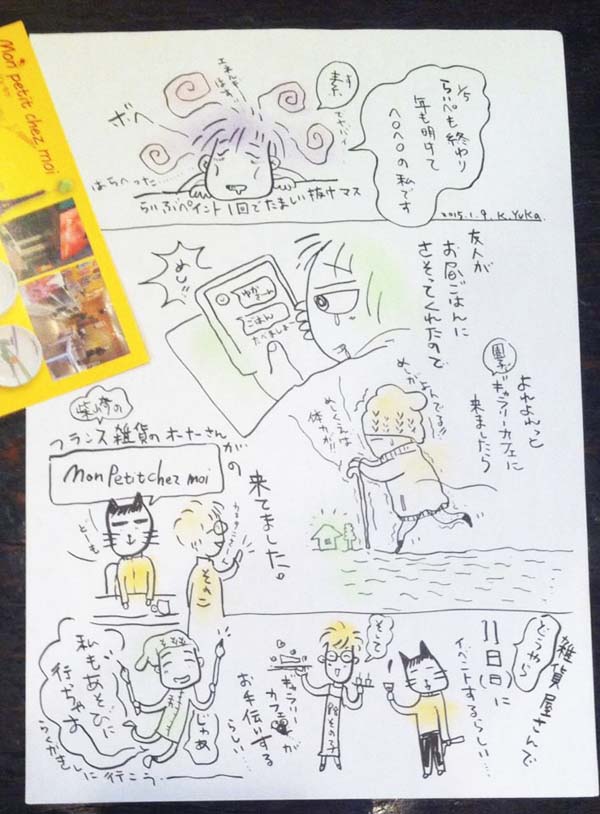 Mon petit chez moi
1/5
らいぺも終わり
年も明けて
ヘロヘロの私です
す
素
エネルギー
はず…
ボヘ
はらへった…
らいぶペイント1回でたましい抜けマス
2015.1.9. K.Yuka.
友人が
お昼ごはんに
さそってくれたので
めし!!
ゆかさーん
ごはん
たべましょー
よれよれっと
園子
ギャラリーカフェに
来ましたら
めしがよんでる!!
めしくえば
体力が!!
柴崎の
フランス雑貨のオーナーさんが
Mon Petit chez moi
の
来てました。
どーも
そのこ
どうやら
雑貨屋さんで
11日(日)に
イベントするらしい…
そして
ギャラリー
カフェ園が
お手伝いする
らしい…
園その子
じゃあ
私もあそびに
行っちゃお
らくがきしに行こう